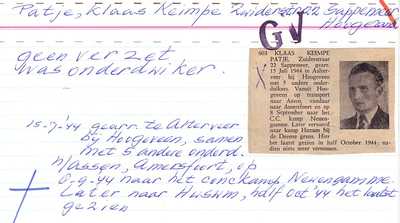 Patje, Klaas Keimpe Zuiderstr. 22 Sappemeer
Hoogezand
GV
geen verzet
was onderduiker
601 KLAAS KEIMPE
PATJE, Zuiderstraat
22 Sappemeer, gearr.
15 Juli 1944 te Aalter-
veer bij Hoogeveen met
5 andere onder-
duikers. Vanuit Hoo-
geveen op transport
naar Assen, vandaar
naar Amersfoort en op
8 September naar het
C.C. kamp Neuen-
gamme. Later vervoerd
naar kamp Huzum bij
de Deense grens. Hier
het laatst gezien in half October 1944; na-
dien niets meer vernomen.
15-7-'44 gearr. te Alterveer
bij Hoogeveen, samen
met 5 andere onderd.
n/Assen, Amersfoort, op
8-9-'44 naar het conc.kamp Neuengamme.
Later naar Husum, half Oct '44 het laatst
gezien